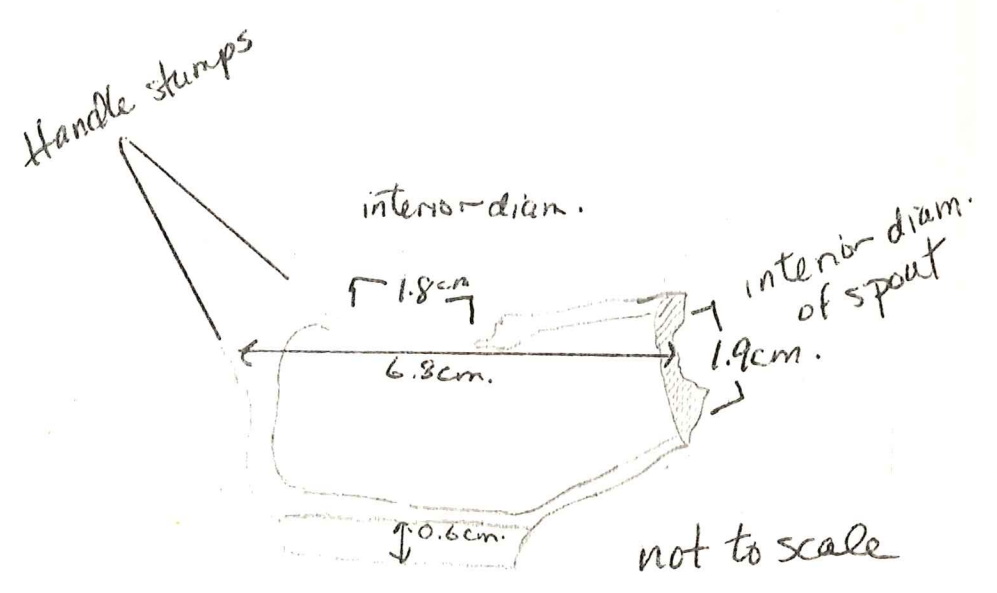 Handle stumps
interior diam.
1.8cm
interior diam.
of spout
6.8cm.
1.9cm.
0.6cm.
not to scale